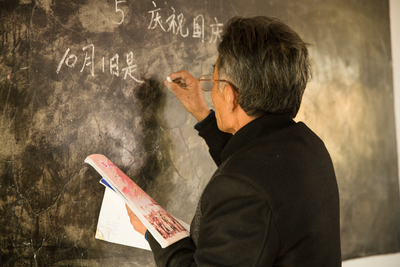 5
庆祝国庆
10月1日是